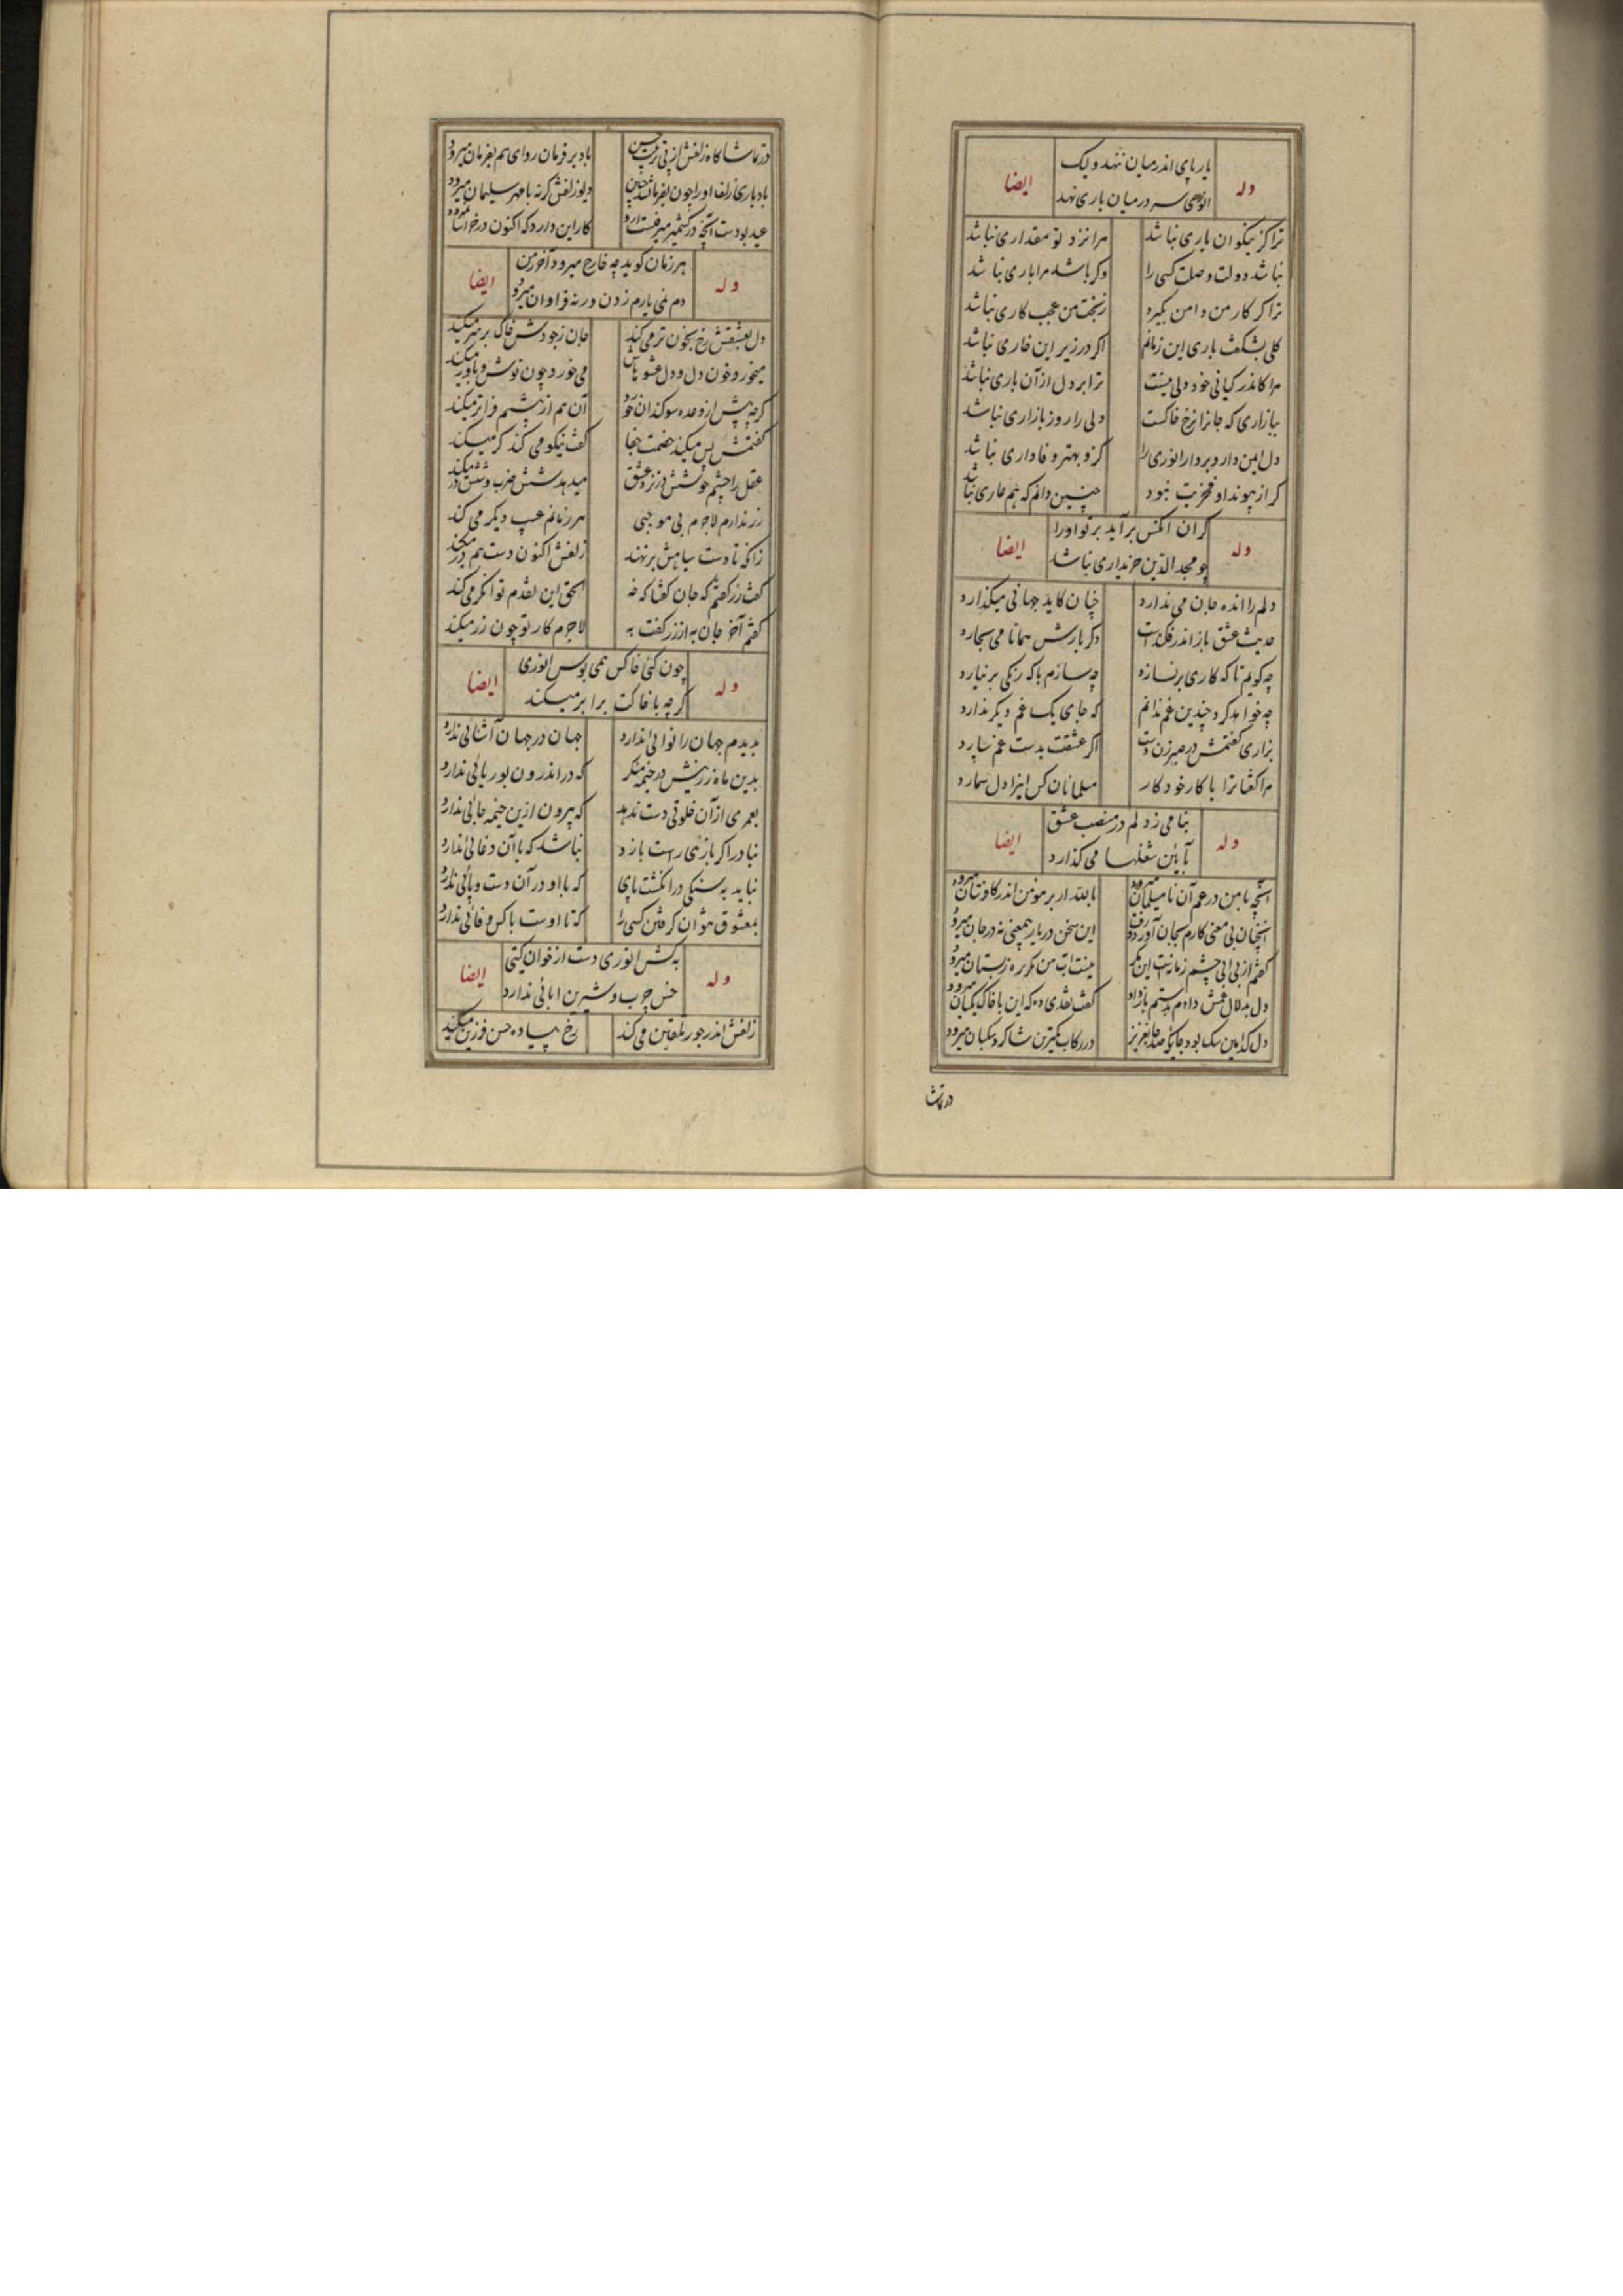 وله
یار پای اندر میان ننهد ولیک
ایضا
انوری سر در میان باری نهد
ترا کز نیکوان یاری نباشد
مرا نزد تو مقداری نباشد
نباشد دولت وصلت کسی را
وکر باشد مرا باری نباشد
ترا کر کار من دامن نکیرد
ز بخت من عجب کاری نباشد
کلی نشکفت باری این زمانم
اکر در زیر این خاری نباشد
مرا کاندر کیائی خود دلی نیست
ترا بر دل از آن باری نباشد
ببازاری که جانرا نرخ خاکست
دلی را روز بازاری نباشد
دل این دارد بردار انوری را
کزو بهتر وفاداری نباشد
کر از پیوند او فخریت نبود
چنین دانم که هم عاری نباشد
وله
کران اکس برآید بر تو او را
ایضا
چو مجدالدین خریداری نباشد
دلم را انده جان می ندارد
چنان کاید جهانی میکذارد
حدیث عشق باز اندر فکندست
دکر بارش همانا می سجارد
چه کویم تا که کاری برنسازد
چه سازم با که رنکی برنیارد
چه خواهد کرد چندین غم ندانم
که جای یک غم دیکر ندارد
بزاری کفتمش در صبر زن دست
اکر عشقت بدست غم سپارد
مرا کفتا ترا با کار خود کار
مسلمانان کس اینرا دل شمارد
وله
بنامیزد دلم در منصب عشق
ایضا
بآئین شغلها می کذارد
آنچه با من در غم آن نامسلمان میرود
بالله ار بر مؤمن اندر کافرستان میرود
آنچنان بی معنی کارم بجان آورد و رفت
این سخن در یار بیمعنی نه در جان میرود
کفتم از بی آبی چشم زمانست این مکر
نیست آب من مکر بر ره ز بستان میرود
دل بدلال غمش دادم بدستم باز داد
کفت نقدی ده که این با خاک یکسان میرود
دل کدامین سک بود جائیکه صد جان عزیز
در رکاب کمترین شاکرد سکبان میرود
در تماشا
در تماشاکاه زلفش از پی ترتیب حسن
باد بر فرمان روای هم بفرمان میرود
باد باری زلف او را چون بفرمان شد چنین
دیو زلفش کرنه با مهر سلیمان میرود
عید بودست آنچه در کشمیر میرفست ازو
کار این دارد که اکنون در خراسان میرود
وله
هر زمان کوید چه خارج میرود آخر ز من
ایضا
دم نمی یارم زدن ورنه فراوان میرود
دل بعشقش رخ بخون تر می کند
جان ز جورش خاک بر سر میکند
میخورد خون دل و دل عشوهاش
می خورد چون نوش و باور میکند
کرچه پیش از وعده سوکندان خورد
آن هم از پیشم فرا تر میکند
کفتمش بس میکند خصمت جفا
کفت نیکو می کند کر میکند
عقل را چشم خوشش در نرد عشق
میدهد شش ضرب و ششدر میکند
زر ندارم لاجرم بی موجبی
هر زمانم عیب دیکر می کند
زانکه تا دست سیاهش برنهند
زلفش اکنون دست هم در میکند
کفت زر کفتم که جان کفتا که خه
الحق این نقدم توانکر می کند
کفتم آخر جان به از زر کفت به
لاجرم کار تو چون زر میکند
وله
چون کنی خاکش همی بوس انوری
ایضا
کرچه با خاکت برابر میکند
بدیدم جهان را نوائی ندارد
جهان در جهان آشنائی ندارد
بدین ماه زرینش در خیمه منکر
که در اندرون بوریائی ندارد
بعمری از آن خلوتی دست ندهد
که بیرون ازین خیمه جائی ندارد
نبادرا کر بازئی راست بازد
نباشد که با آن دغائی ندارد
نیاید به سنکی در انکشت پای
که با او در آن دست و پائی ندارد
بمعشوق نتوان کرفتن کسی را
که تا اوست با کس وفائی ندارد
وله
بکش انوری دست از خوان کیتی
ایضا
چنین چرب و شیرین ابائی ندارد
زلفش اندر جور تلقین می کند
رخ پیاده حسن فرزین میکند